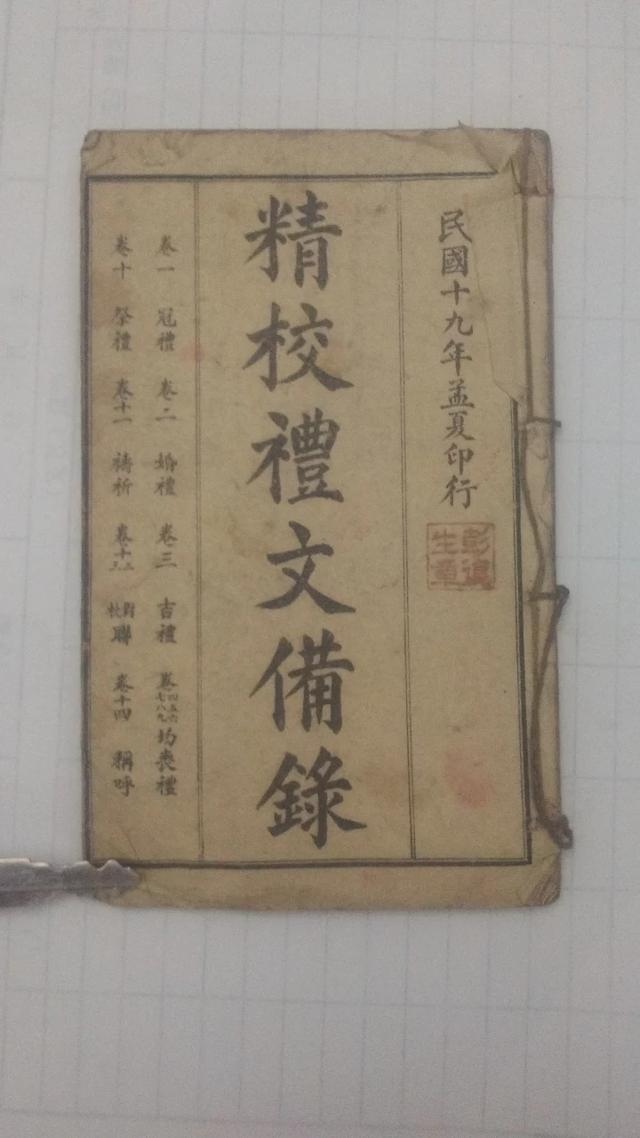 民國十九年孟夏印行
精校禮文備錄
卷一 冠禮 卷二 婚禮 卷三 吉禮 卷四五六七八九均喪禮
卷十 祭禮 卷十一 禱祈 卷十二三 對聯 卷十四 稱呼